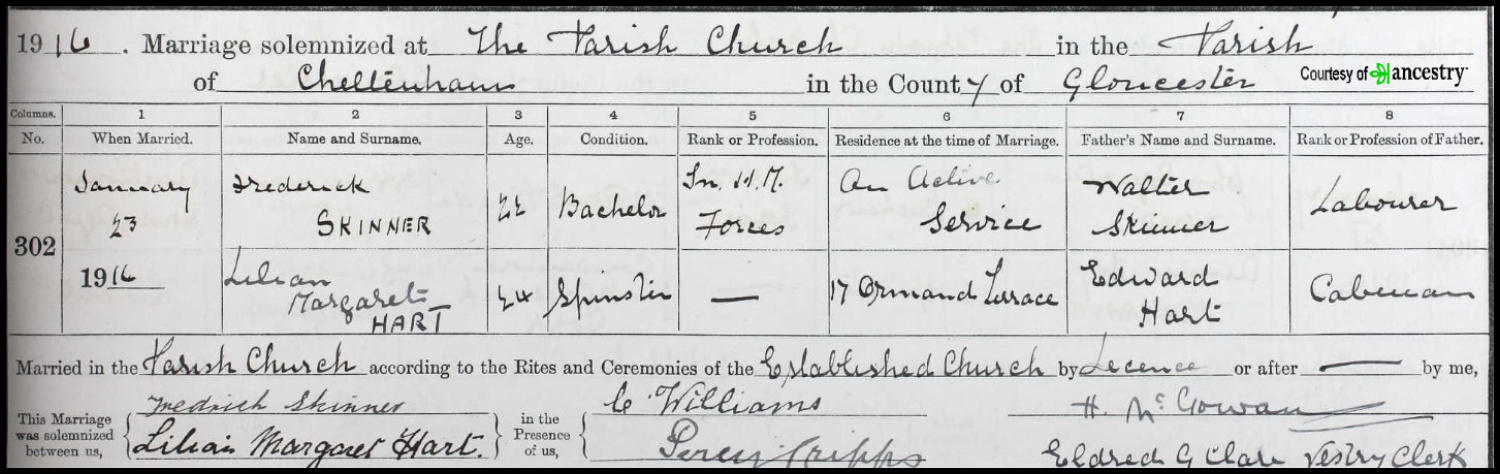 1916. Marriage solemnized at The Parish Church in the Parish
of Cheltenham in the County of Gloucester Courtesy of ancestry
Columns. 1 2 3 4 5 6 7 8
No. When Married. Name and Surname. Age. Condition. Rank or Profession. Residence at the time of Marriage. Father's Name and Surname. Rank or Profession of Father.
302
January
23
1916
Frederick
SKINNER
22
Bachelor
In H.M.
Forces
On Active
Service
Walter
Skinner
Labourer
Lilian
Margaret
HART
24
Spinster
—
17 Ormand Terrace
Edward
Hart
Cabman
Married in the Parish Church according to the Rites and Ceremonies of the Established Church by Licence or after — by me,
This Marriage was solemnized between us,
Fredrich Skinner
Lilian Margaret Hart.
in the Presence of us,
C. Williams
Percy Cripps
H. McGowan
Eldred G Clare Vestry Clerk